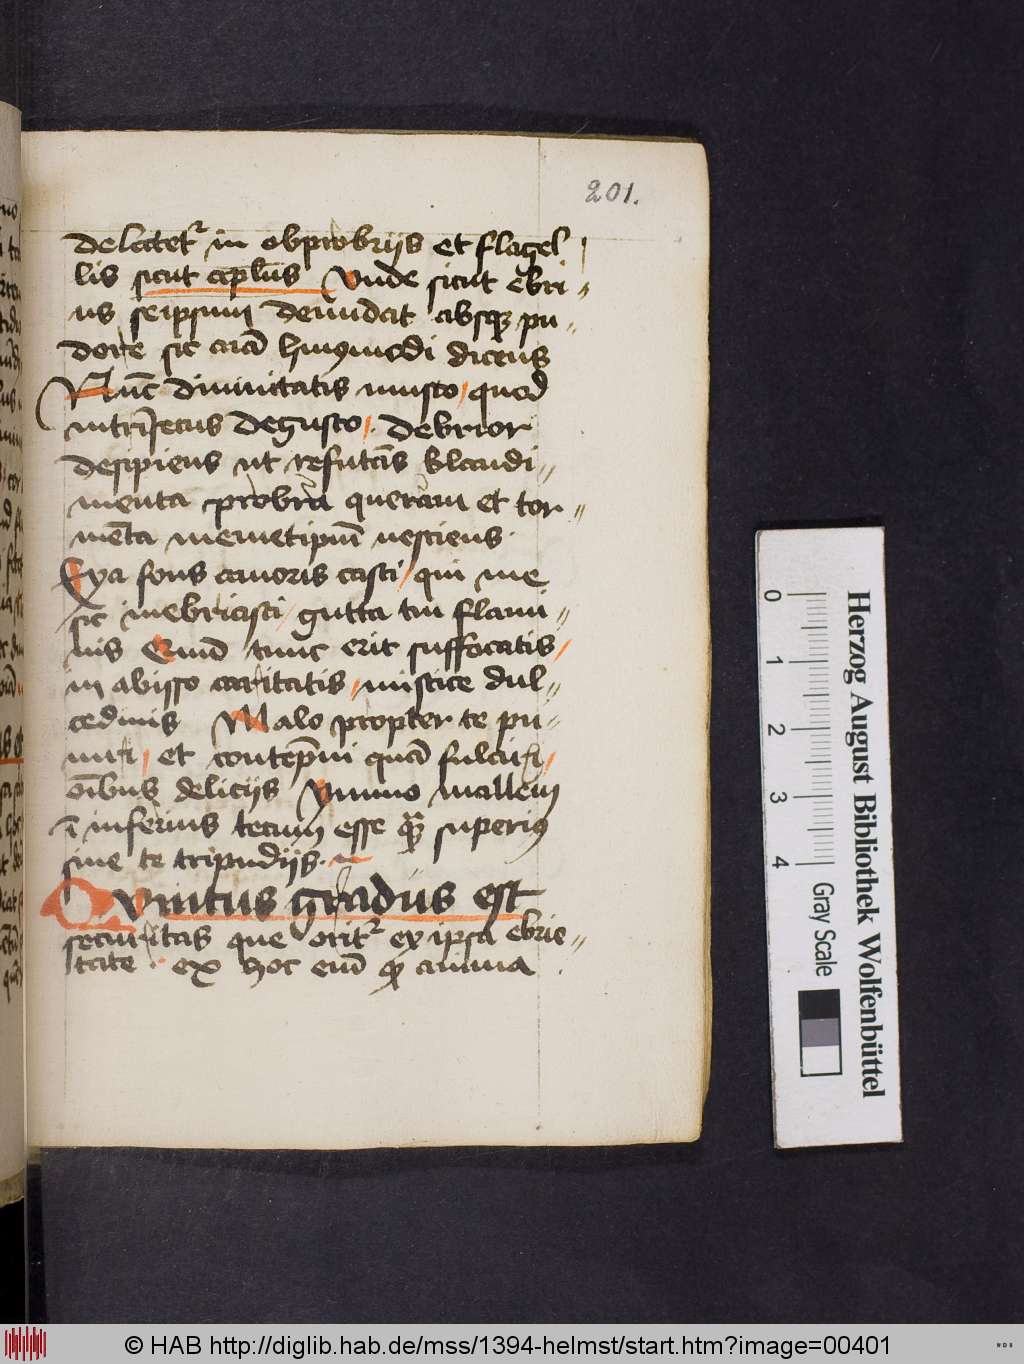 201.
delectetr in obprobrijs et flagel
lis sicut apl̄us Vnde sicut ebri⸗
us seipsum denudat absqȝ pu⸗
dore sic aīa hmꝰmodi dicens
Nūc diuinitatis musto / quod
intrīsecus degusto / debrior
desipiens ut refutās blandi⸗
menta probra queram et tor⸗
mēta memetipm̄ nesciens
Eya fons amoris casti / qui me
sic inebriasti / gutta tui flami⸗
nis Quid tunc erit suffocatis /
in abisso caritatis / mistice dul⸗
cedinis Malo propter te pu⸗
niri / et contēpni quā fulciri /
oībus delicijs Ymmo mallem
ī inferius tecum esse qȝ superiꝰ
sine te tripudijs
Quintus gradus est
securitas que oritr ex ipsa ebrie⸗
tate ex hoc enī qȝ anima
0 1 2 3 4
Gray Scale
Herzog August Bibliothek Wolfenbüttel
© HAB http://diglib.hab.de/mss/1394-helmst/start.htm?image=00401